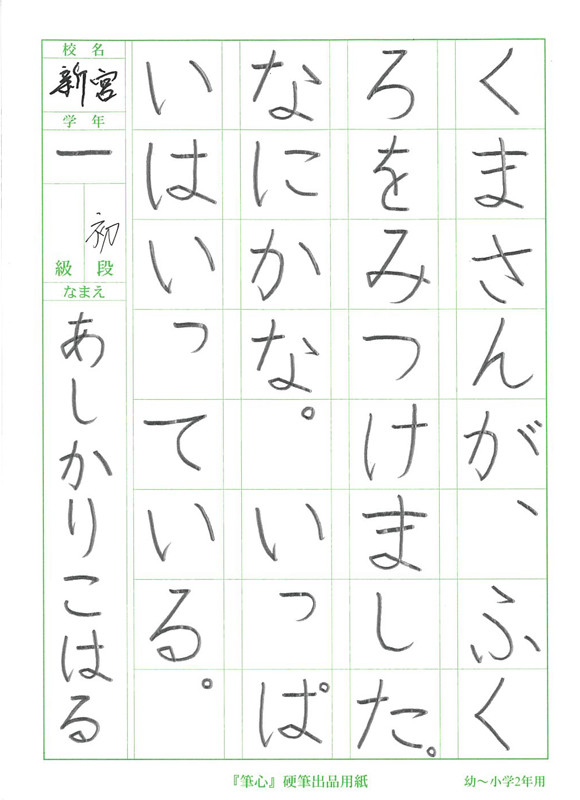 くまさんが、ふく
ろをみつけました。
なにかな。いっぱ
いはいっている。
校名
新宮
学年
一
級 段
初
なまえ
あしかりこはる
『筆心』硬筆出品用紙
幼〜小学2年用